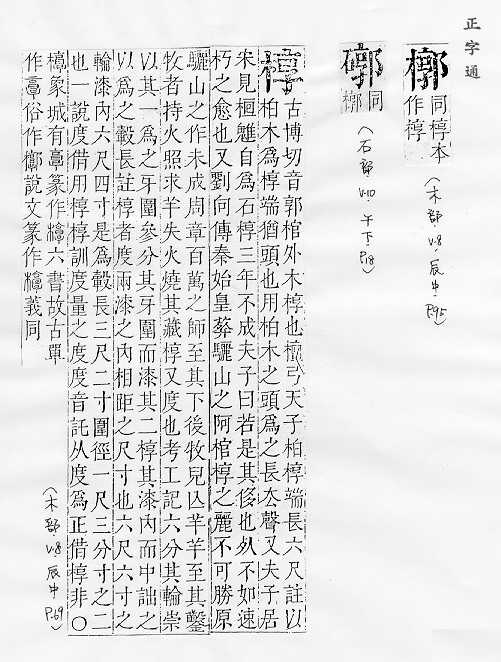 正字通
槨 同椁本
作椁
(木部 V.8 辰中 P.95)
𥕖 同
槨
(石部 V.10 午下 P.18)
椁 古博切音郭棺外木椁也檀弓天子柏椁端長六尺註以
柏木爲椁端猶頭也用柏木之頭爲之長厺聲又夫子居
宋見桓魋自爲石椁三年不成夫子曰若是其侈也死不如速
朽之愈也又劉向傳秦始皇葬驪山之阿棺椁之麗不可勝原
驪山之作未成周章百萬之師至其下後牧兒亾羊羊至其鑿
牧者持火照求羊失火燒其藏椁又度也考工記六分其輪崇
以其一爲之牙圍參分其牙圍而漆其二椁其漆內而中詘之
以爲之轂長註椁者度兩漆之內相距之尺寸也六尺六寸之
輪漆內六尺四寸是爲轂長三尺二寸圍徑一尺三分寸之二
也一說度借用椁椁訓度量之度度音託从度爲正借椁非○
象城有𩫏篆作六書故古單
作𩫏俗作槨說文篆作義同
(木部 V.8 辰中 P.69)